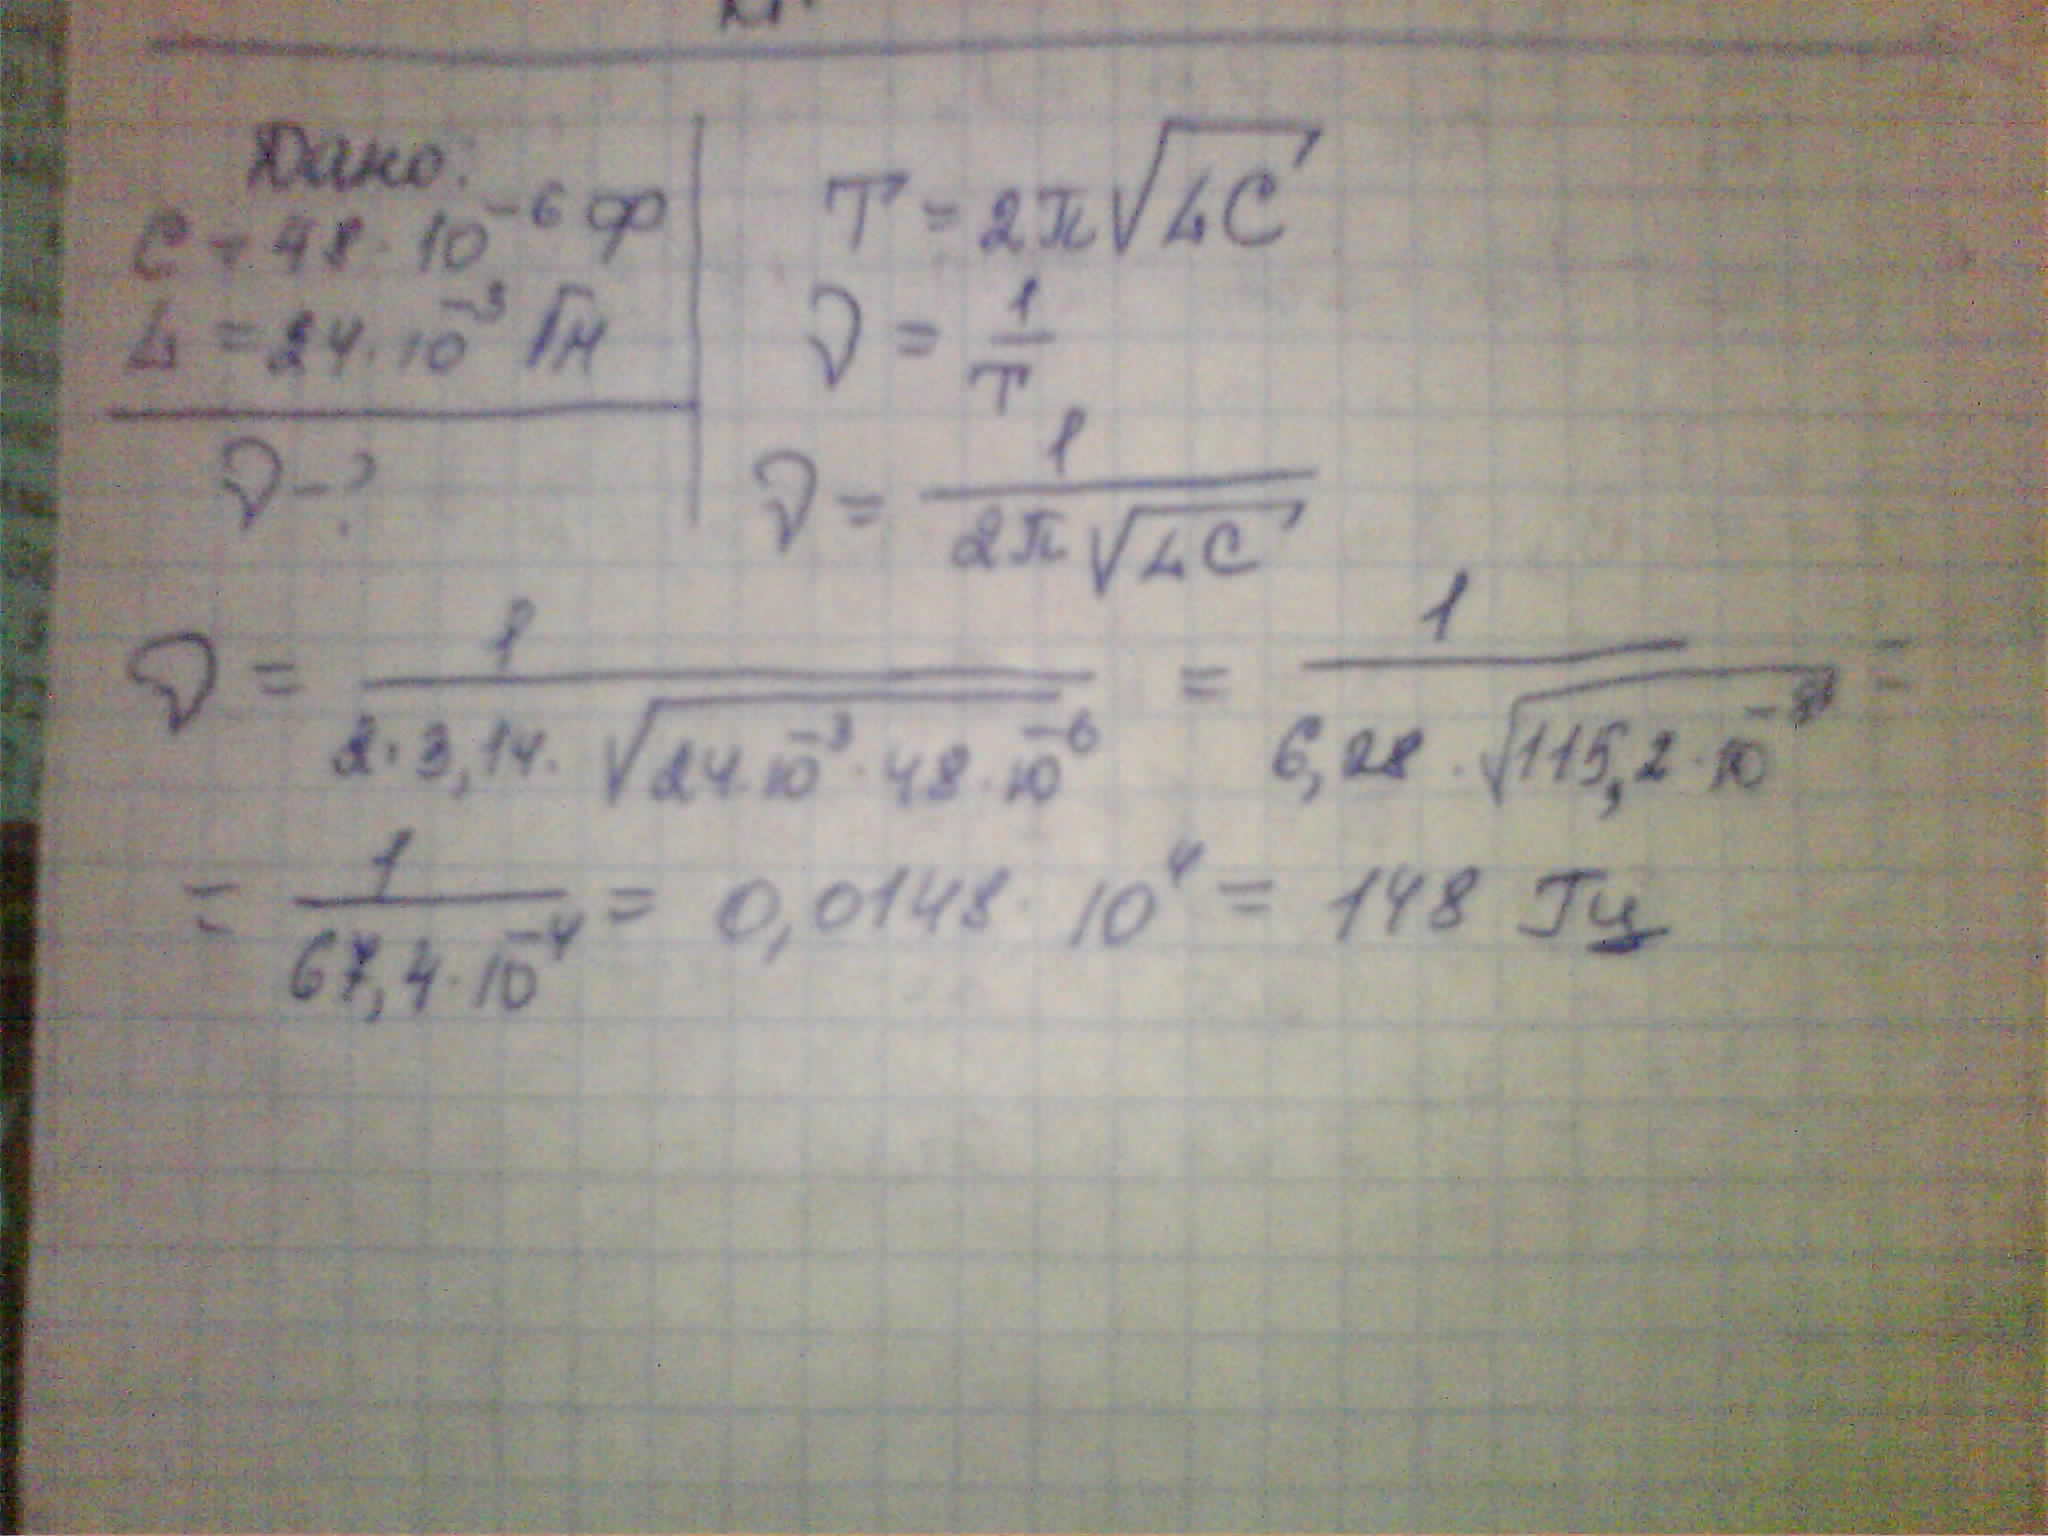 Дано:
C = 48 · 10⁻⁶ Ф
L = 24 · 10⁻³ Гн
ν - ?
T = 2π√LC
ν = 1/T
ν = 1/(2π√LC)
ν = 1/(2 · 3,14 · √(24 · 10⁻³ · 48 · 10⁻⁶)) = 1/(6,28 · √(115,2 · 10⁻⁸)) =
= 1/(67,4 · 10⁻⁴) = 0,0148 · 10⁴ = 148 Гц